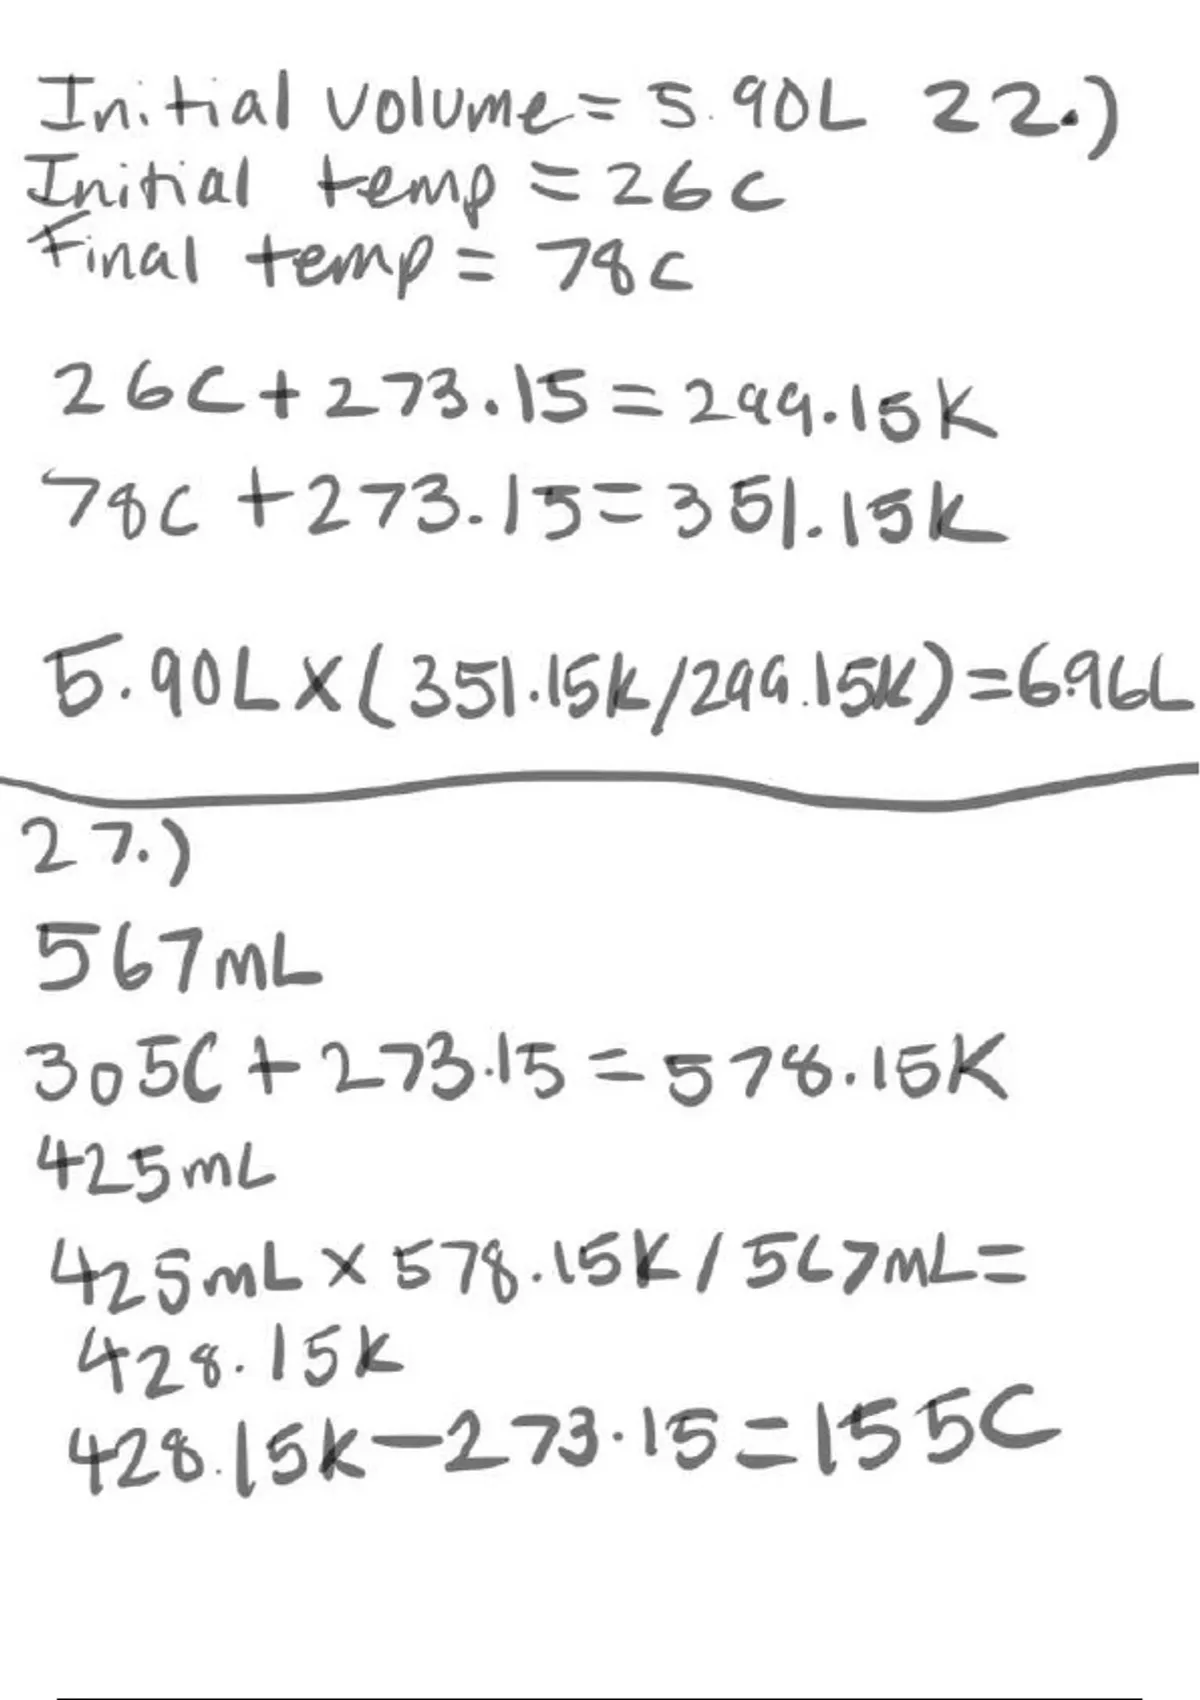 Initial volume = 5.90L 22.)
Initial temp = 26C
Final temp = 78C
26C + 273.15 = 299.15K
78C + 273.15 = 351.15K
5.90L x (351.15K/299.15K) = 6.96L
27.)
567mL
305C + 273.15 = 578.15K
425mL
425mL x 578.15K / 567mL =
428.15K
428.15K - 273.15 = 155C